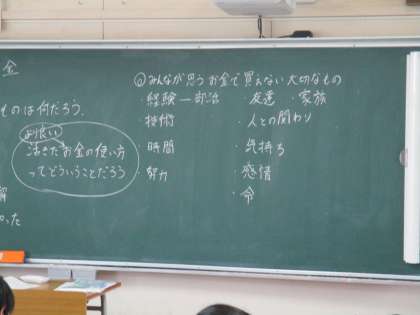 金
ものは何だろう。
より良い
活きたお金の使い方
ってどういうことだろう
◎みんなが思うお金で買えない大切なもの
・経験-部活 ・友達 ・家族
・技術 ・人との関わり
・時間 ・気持ち
・努力 ・感情
・命